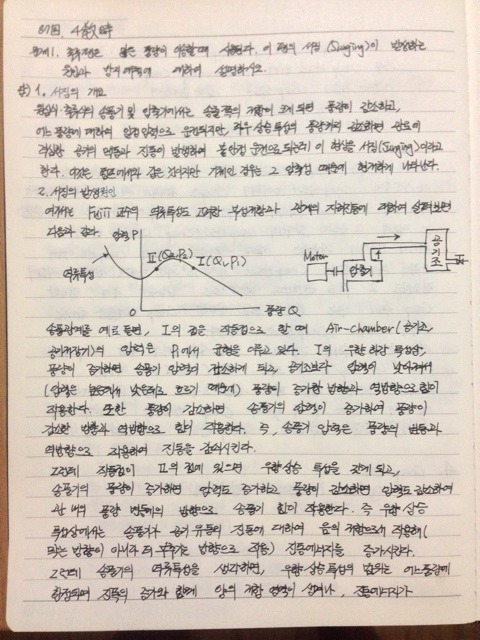 87회, 4교시
문제 1. 축류팬은 많은 풍량이 이송할때 사용된다. 이 팬의 서징 (Surging)이 발생하는
원인과 방지대책에 대하여 설명하시오.
답) 1. 서징의 개요
원심식·축류식의 송풍기 및 압축기에서는 송출쪽의 저항이 크게 되면 풍량이 감소하고,
어느 풍량에 대하여 일정압력으로 운전되지만, 좌우 상승 특성의 풍량까지 감소하면 관로에
격심한 공기의 맥동과 진동이 발생하여 불안정 운전으로 되는데 이 현상을 서징(Surging)이라고
한다. 이것은 펌프에서와 같은 것이지만 기체인 경우는 그 압축성 때문에 현저하게 나타난다.
2. 서징의 발생원인
여기서는 Fujii 교수의 역류특성도 고려한 부성저항과 관계의 자려진동에 대하여 살펴보면
다음과 같다. 압력 P
II (Q2, P2) I (Q1, P1)
역류특성
0 풍량 Q
Motor 압축기 공기조
송풍관계를 예로 들면, I의 점은 작동점으로 할 때 Air-chamber (공기조,
공기저장기)의 압력은 P1에서 균형을 이루고 있다. I의 우향 하강 특성상,
풍량이 증가하면 송풍기 압력이 감소하게 되고, 공기조보다 압력이 낮아져서
(압력은 높은데서 낮은데로 흐르기 때문에) 풍량이 증가한 방향과 역방향으로 힘이
작용한다. 또한 풍량이 감소하면 송풍기의 압력이 증가하여 풍량이
감소한 방향과 역방향으로 힘이 작용한다. 즉, 송풍기 압력은 풍량의 변동과
역방향으로 작용하여 진동을 감쇠시킨다.
그런데 작동점이 II의 점에 있으면 우향상승 특성을 갖게 되고,
송풍기의 풍량이 증가하면 압력도 증가하고 풍량이 감소하면 압력도 감소하여
관 내의 풍량 변동의 방향으로 송풍기 힘이 작용한다. 즉 우향 상승
특성상에서는 송풍기가 공기 유동의 진동에 대하여 음의 저항으로서 작용해 (
막는 방향이 아니라 더 부추기는 방향으로 작용) 진동에너지를 증가시킨다.
그런데 송풍기의 역류특성을 생각하면, 우향 상승특성의 범위는 어느풍량에
한정되며 진폭의 증가와 함께 양의 저항 영역이 생겨나, 진동에너지가